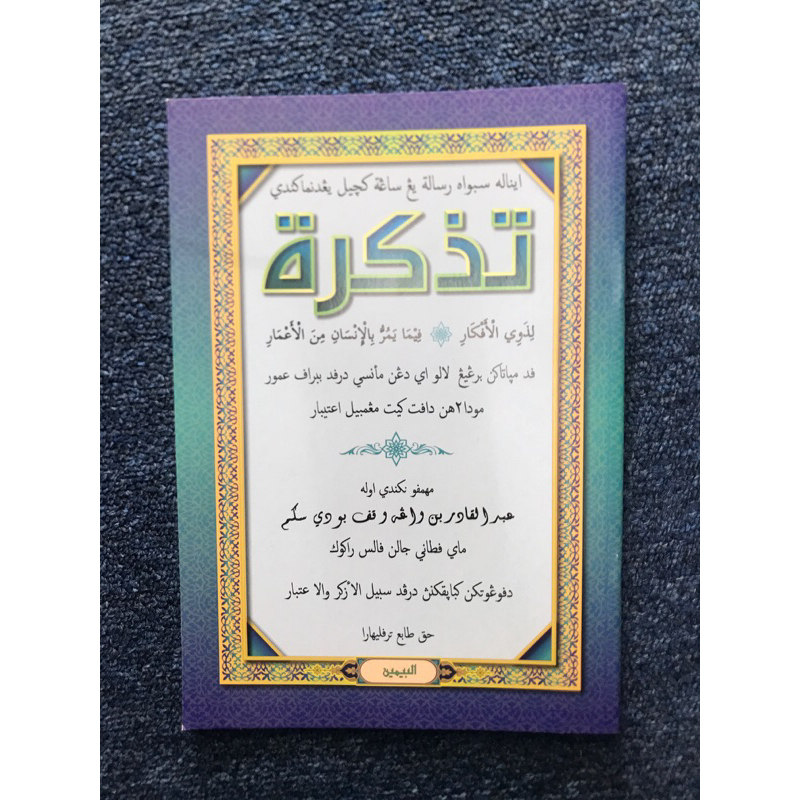 اينله سبواه رسالة يڠ ساڠة كچيل يڠدنماكندي
تذكرة
لِذَوِي الْأَفْكَارِ فِيْمَا يَمُرُّ بِالْإِنْسَانِ مِنَ الْأَعْمَارِ
فد مپاتاكن برڠيڠ لالو اي دڠن مأنسي درفد ببراف عمور
مودا٢هن دافت كيت مڠمبيل اعتبار
مهمفو نكندي اوله
عبد القادر بن واڠه وقف بودي سكم
ماي فطاني جالن فالس راكوك
دفوڠوتكن كباپقكنث درڤد سبيل الأزكر والا عتبار
حق طابع ترفليهارا